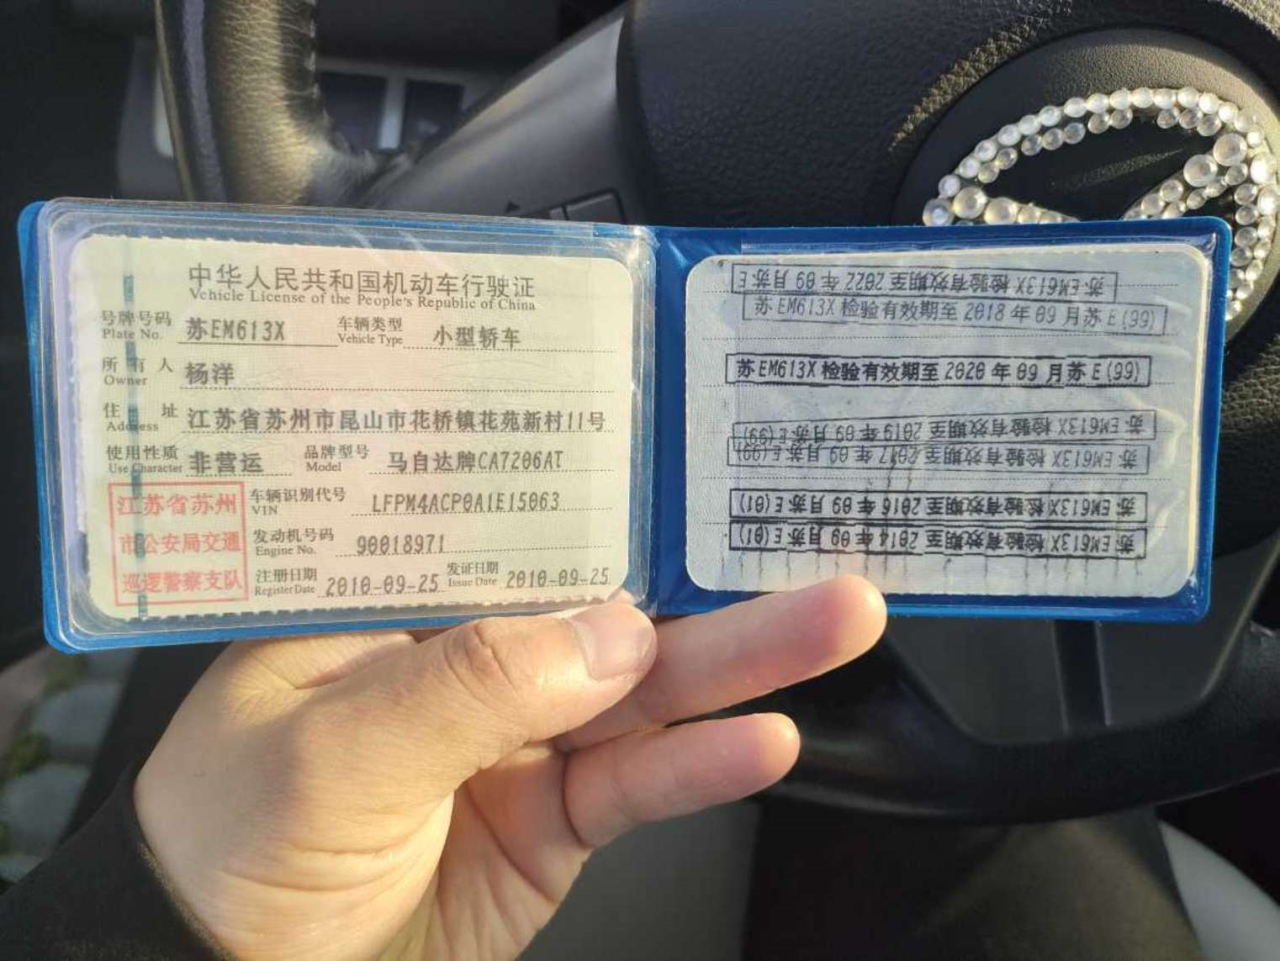 中华人民共和国机动车行驶证
Vehicle License of the People's Republic of China
号牌号码 苏EM613X 车辆类型 小型轿车
Plate No. Vehicle Type
所有人 杨洋
Owner
住址 江苏省苏州市昆山市花桥镇花苑新村11号
Address
使用性质 非营运 品牌型号 马自达牌CA7206AT
Use Character Model
江苏省苏州
市公安局交通
巡逻警察支队
车辆识别代号 LFPM4ACP0A1E15063
VIN
发动机号码 90018971
Engine No.
注册日期 2010-09-25 发证日期 2010-09-25
Register Date Issue Date
苏EM613X 检验有效期至 2022 年 09 月苏 E
苏EM613X 检验有效期至 2018 年 09 月苏 E(99)
苏EM613X 检验有效期至 2020 年 09 月苏 E(99)
苏EM613X 检验有效期至 2019 年 09 月苏 E(99)
苏EM613X 检验有效期至 2017 年 09 月苏 E(99)
苏EM613X 检验有效期至 2016 年 09 月苏 E(01)
苏EM613X 检验有效期至 2014 年 09 月苏 E(01)